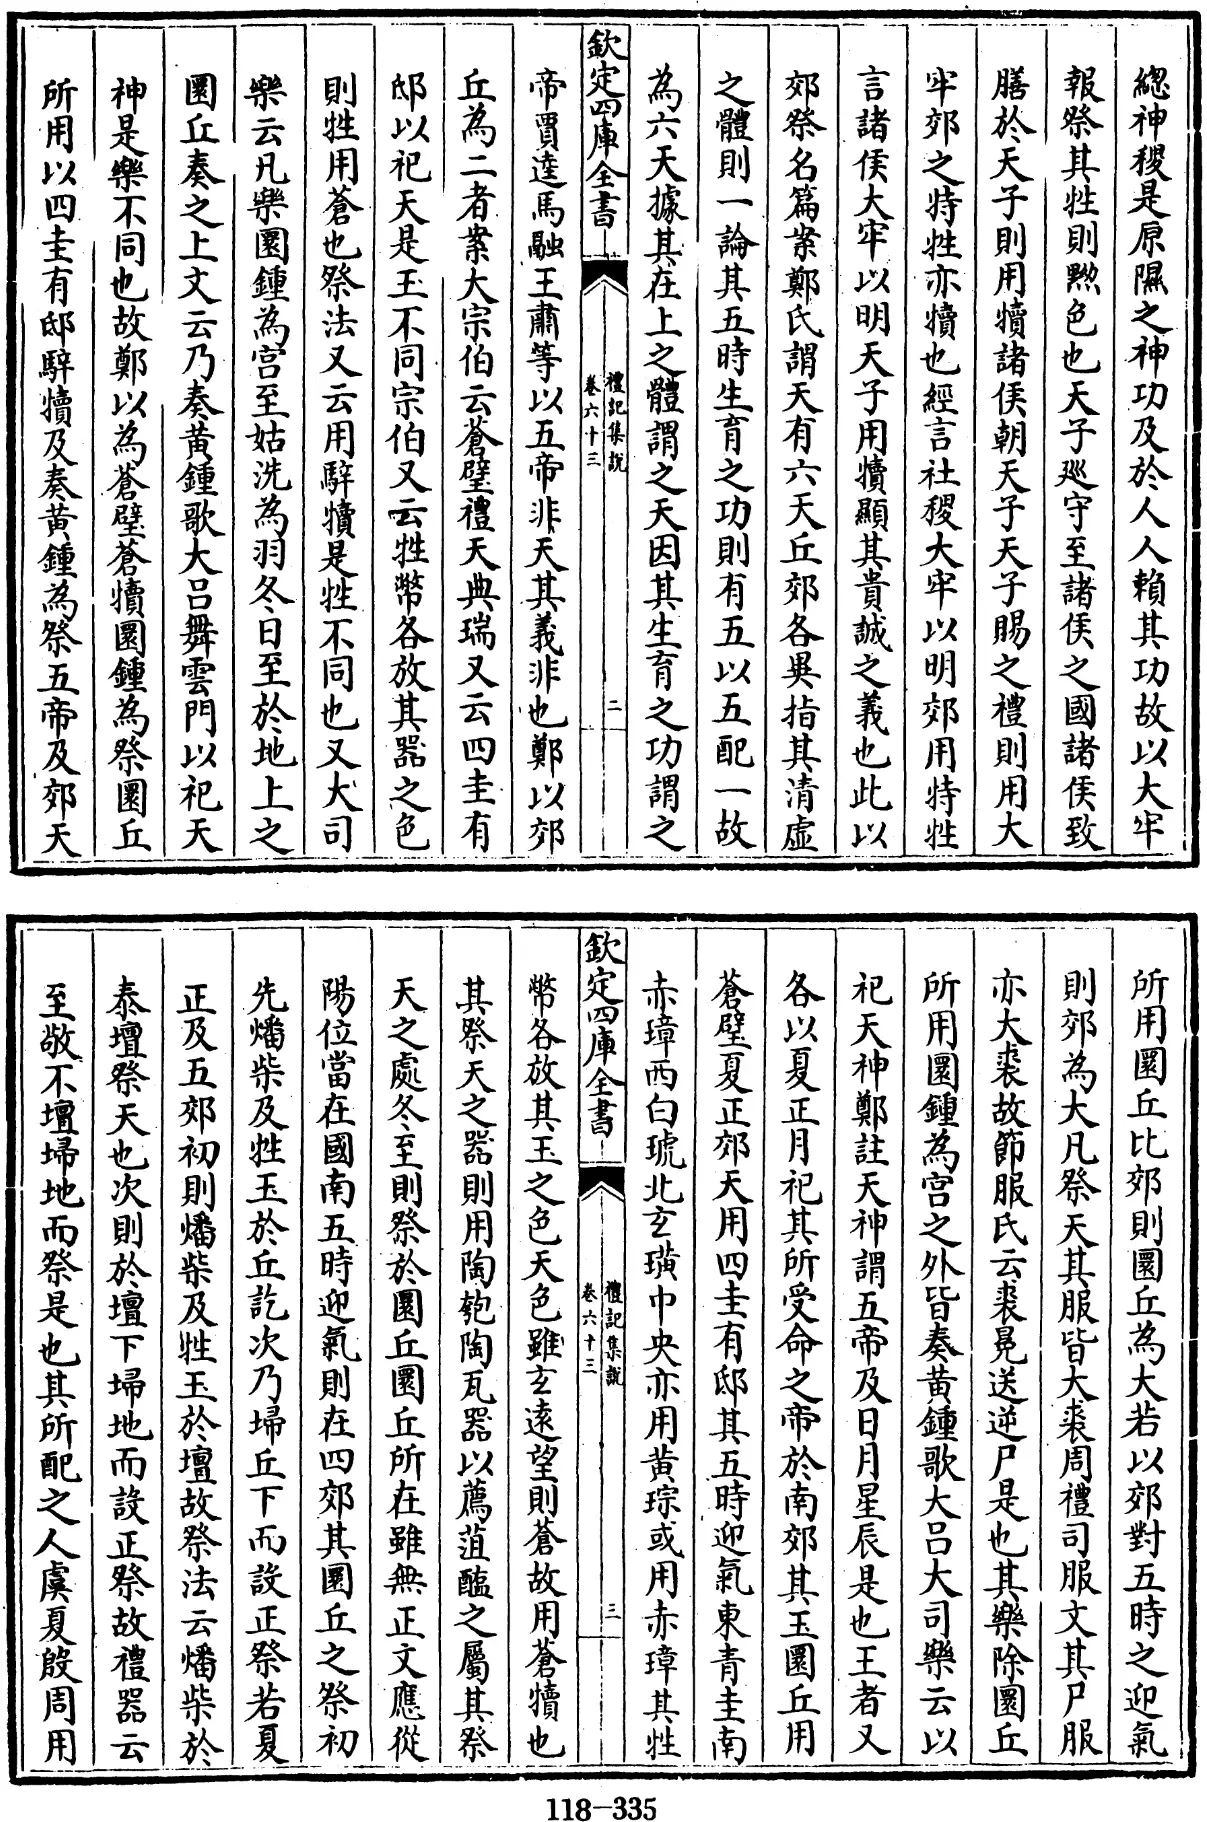 總神稷是原隰之神功及於人人賴其功故以大牢
報祭其牲則黝色也天子廵守至諸侯之國諸侯致
膳於天子則用犢諸侯朝天子天子賜之禮則用大
牢郊之特牲亦犢也經言社稷大牢以明郊用特牲
言諸侯大牢以明天子用犢顯其貴誠之義也此以
郊祭名篇案鄭氏謂天有六天丘郊各異指其清虛
之體則一論其五時生育之功則有五以五配一故
為六天據其在上之體謂之天因其生育之功謂之
欽定四庫全書
禮記集説
卷六十三
二
帝賈逵馬融王肅等以五帝非天其義非也鄭以郊
丘為二者案大宗伯云蒼璧禮天典瑞又云四圭有
邸以祀天是玉不同宗伯又云牲幣各放其器之色
則牲用蒼也祭法又云用騂犢是牲不同也又大司
樂云凡樂圜鍾為宫至姑洗為羽冬日至於地上之
圜丘奏之上文云乃奏黃鍾歌大呂舞雲門以祀天
神是樂不同也故鄭以為蒼璧蒼犢圜鍾為祭圜丘
所用以四圭有邸騂犢及奏黃鍾為祭五帝及郊天
所用圜丘比郊則圜丘為大若以郊對五時之迎氣
則郊為大凡祭天其服皆大裘周禮司服文其尸服
亦大裘故節服氏云裘冕送逆尸是也其樂除圜丘
所用圜鍾為宫之外皆奏黃鍾歌大呂大司樂云以
祀天神鄭註天神謂五帝及日月星辰是也王者又
各以夏正月祀其所受命之帝於南郊其玉圜丘用
蒼璧夏正郊天用四圭有邸其五時迎氣東青圭南
赤璋西白琥北玄璜中央亦用黃琮或用赤璋其牲
欽定四庫全書
禮記集說
卷六十三
三
幣各放其玉之色天色雖玄遠望則蒼故用蒼犢也
其祭天之器則用陶匏陶瓦器以薦菹醢之屬其祭
天之處冬至則祭於圜丘圜丘所在雖無正文應從
陽位當在國南五時迎氣則在四郊其圜丘之祭初
先燔柴及牲玉於丘訖次乃埽丘下而設正祭若夏
正及五郊初則燔柴及牲玉於壇故祭法云燔柴於
泰壇祭天也次則於壇下埽地而設正祭故禮器云
至敬不壇埽地而祭是也其所配之人虞夏殷周用
118-335